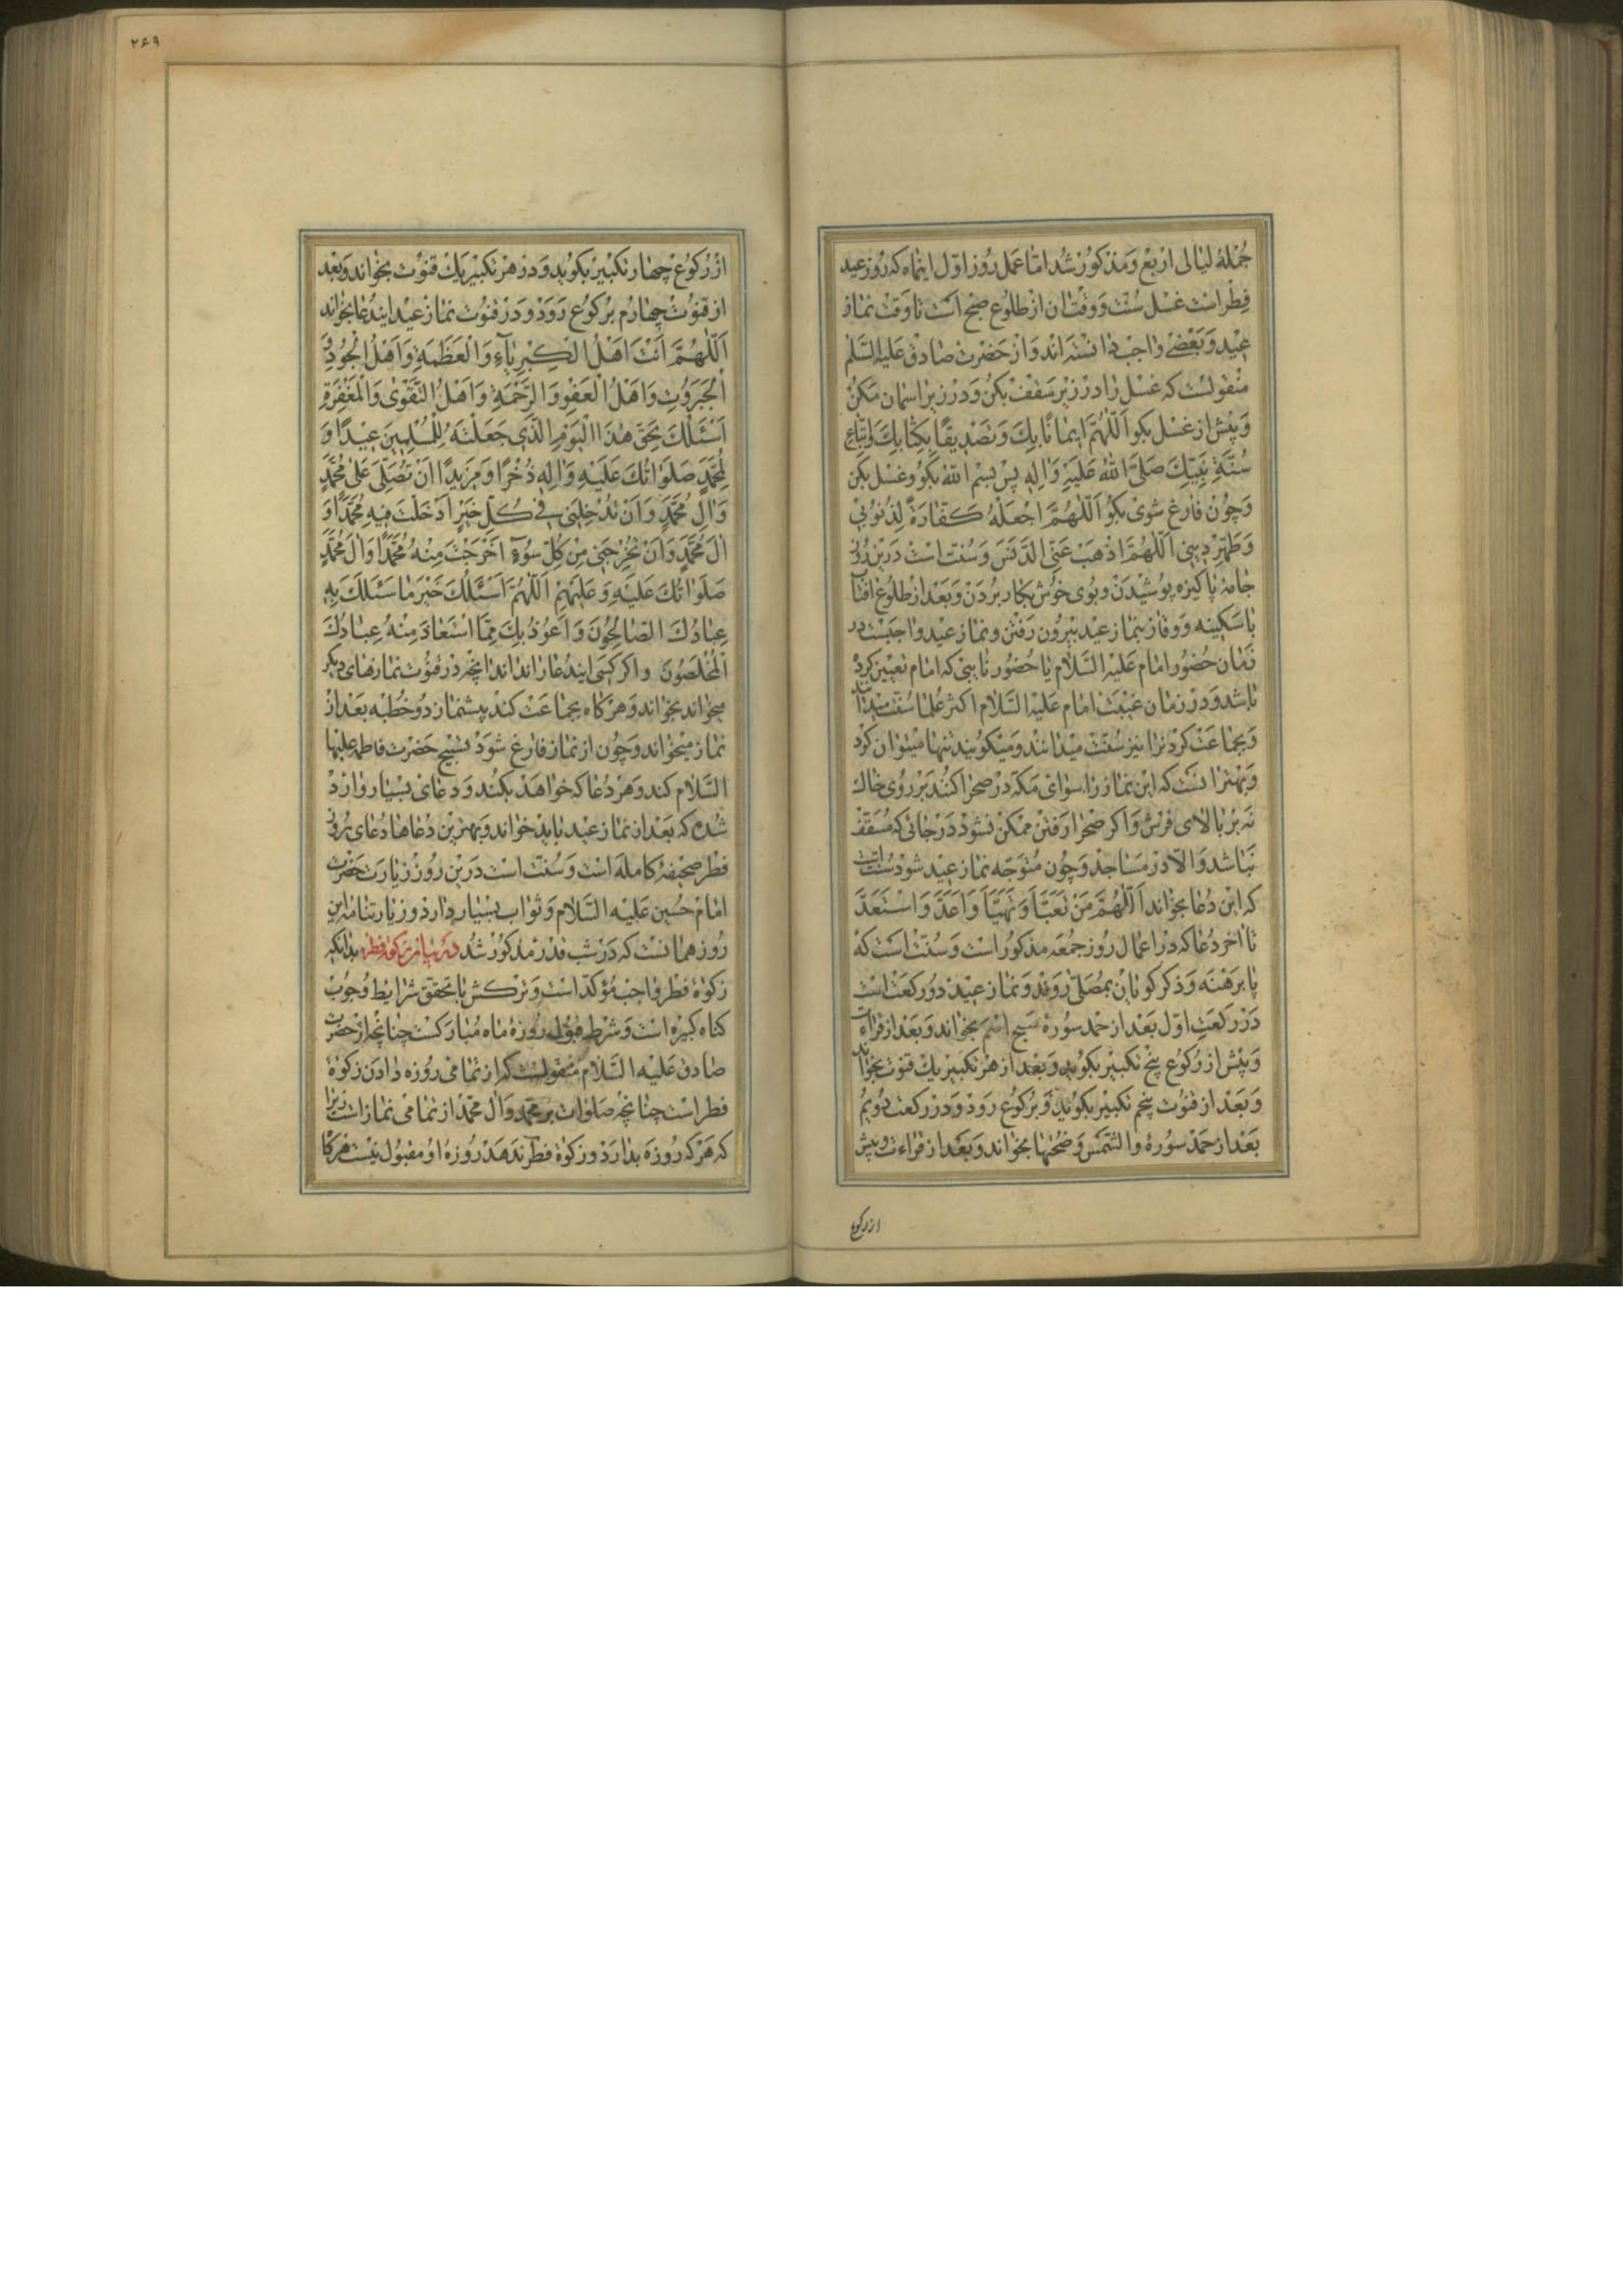 جُمْلهٔ لیالی اربع وَمذکور شُد امّا عمل روز اوّل اینماه که روز عید
فِطْر است غسل سُنّت وَوقت ان از طلوع صبح است تا وَقت نماز
عیْد وَبَعْضے واجب دانسته‌اند وَاز حَضرت صادق عَلیه السَّلم
منْقولست که غسل را در زیر سَقف بکن وَدر زیر اسمان مَکنُ
وَپیْش از غسْل بکو اَللّٰهُمَّ ایمانًا بِكَ وَتَصْدیقًا بِکِتابِكَ وَاتِّباع
سُنَّةِ نَبِیِّكَ صَلَّى اللهُ عَلَیْهِ وَالِهِ پس بسْم الله بکو وغسْل بکن
وَچون فارغ شوی بکو اَللّٰهُمَّ اجْعَلْهُ کَفّارَةً لِذُنُوبی
وَطَهِّرْ دینی اَللّٰهُمَّ اذْهَبْ عَنِّی الدَّنَسَ وَسُنّت اسْت درین روز
جامهٔ پاکیزه پوشیدَن وبوی خوْش بکار بُردَن وَبَعْد از طلوع افتاب
با سَکینه وَوقار بنماز عیْد بیرون رَفتن ونماز عید واجبَست در
زَمان حضُور امام عَلیْهِ السَّلام یا حضُور نایبی که امام تعیین کردْ
باشد وَدر زمان غیْبَت امام عَلیْه السَّلام اکثر علما سُنّت میْدانند
وَبجماعَت کردنرا نیز سُنّت میْدانند وَمیْکویند تنها میْتوان کَرد
وَبهْتر انست که این نماز را سوای مَکّه در صحرا کنند بَر رُوی خاك
نه بر بالای فرش وَاکر صَحْرا رَفتن ممْکن نشود دَر جائی که مُسَقّف
نَباشد وَالّا در مَساجد وَچون متوَجّه نماز عیْد شود سُنّت است
که این دُعا بخواند اَللّٰهُمَّ مَنْ تَعَبَّاَ وَتَهَیَّاَ وَاَعَدَّ وَاسْتَعَدَّ
تا اخر دُعا که در اعمال روز جمُعَه مذکور است وَسُنّت است که
پا برَهْنَه وَذکر کویان بمُصَلّی رَوَند وَنماز عیْد دو رکعَت است
دَر رکعَتِ اوّل بَعْد از حمْد سورهٔ سَبّح اسْمَ بخواند وَبَعْد از قراءت
وَپیْش از رُکوع پنج تکبیر بکوید وَبَعْد از هر تکبیر یك قنوت بخواند
وَبَعْد از قنوْت پنجم تکبیر بکوید وَبرُکوع رَوَد وَدر رکعت دُویُم
بَعْد از حَمْد سورهٔ والشَّمْس وَضُحٰیها بخواند وَبَعْد از قراءت وپیش
از رکوع
۲۶۹
از رُکوع چهار تکبیر بکوید وَدر هر تکبیر یك قنوت بخواند وَبَعْد
از قنوْت چهارم برُکوع رَوَدْ وَدَر قنوْت نماز عیْد ایندُعا بخواند
اَللّٰهُمَّ اَنْتَ اَهْلُ الْکِبْرِیآءِ وَالْعَظَمَةِ وَاَهْلُ الْجُودِ وَ
الْجَبَرُوتِ وَاَهْلُ الْعَفْوِ وَالرَّحْمَةِ وَاَهْلُ التَّقْوٰی وَالْمَغْفِرَةِ
اَسْئَلُكَ بِحَقِّ هٰذَا الْیَوْمِ الَّذی جَعَلْتَهُ لِلْمُسْلِمینَ عیدًا وَ
لِمُحَمَّدٍ صَلَوَاتُكَ عَلَیْهِ وَالِهِ ذُخْرًا وَمَزیدًا اَنْ تُصَلِّیَ عَلٰی مُحَمَّدٍ
وَالِ مُحَمَّدٍ وَاَنْ تُدْخِلَنی فی کُلِّ خَیْرٍ اَدْخَلْتَ فیهِ مُحَمَّدًا وَ
الَ مُحَمَّدٍ وَاَنْ تُخْرِجَنی مِنْ کُلِّ سُوءٍ اَخْرَجْتَ مِنْهُ مُحَمَّدًا وَالَ مُحَمَّدٍ
صَلَوٰاتُكَ عَلَیْهِ وَعَلَیْهِمْ اَللّٰهُمَّ اَسْئَلُكَ خَیْرَ ما سَئَلَكَ بِهِ
عِبادُكَ الصّالِحُونَ وَاَعُوذُ بِكَ مِمَّا اسْتَعاذَ مِنْهُ عِبادُكَ
الْمُخْلَصُونَ واکر کسی ایندُعا را نداند انچه در قنوُت نمازهای دیکر
میخواند بخواند وَهرکاه بجماعَت کند پیشنماز دو خُطبه بَعْد از
نماز میْخواند وَچون از نماز فارغ شوَد تسبیح حَضرت فاطمه علیها
السَّلام کند وَهر دُعا که خواهَد بکند وَدعای بسْیار وارد
شده که بَعْد از نماز عید باید خواند وَبهترین دُعاها دُعای روز
فطر صحیفهٔ کامله است وَسُنّت است درین روز زیارت حَضرت
امام حُسین عَلیْه السَّلام وَثواب بسْیار دارد وزیارتنامه این
روز همانست که دَر شب قدر مذکور شُد در بیان زکوة فطره بدانکه
زکوة فطر واجب مؤکّد است وَترکش با تحقق شرایط وُجوب
کناه کبیره است وَشرط قبول روزهٔ ماه مُبارکست چنانچه از حضرت
صادق عَلیْه السَّلام منقولست که از تمامی روزه دادن زکوة
فطر است چنانچه صلوات بر محمّد وَال محمّد از تمامی نماز است زیرا
که هَرکه روزه بدارد وزکوة فطر ندهَد روزهٔ او مقبول نیْست هرکاه